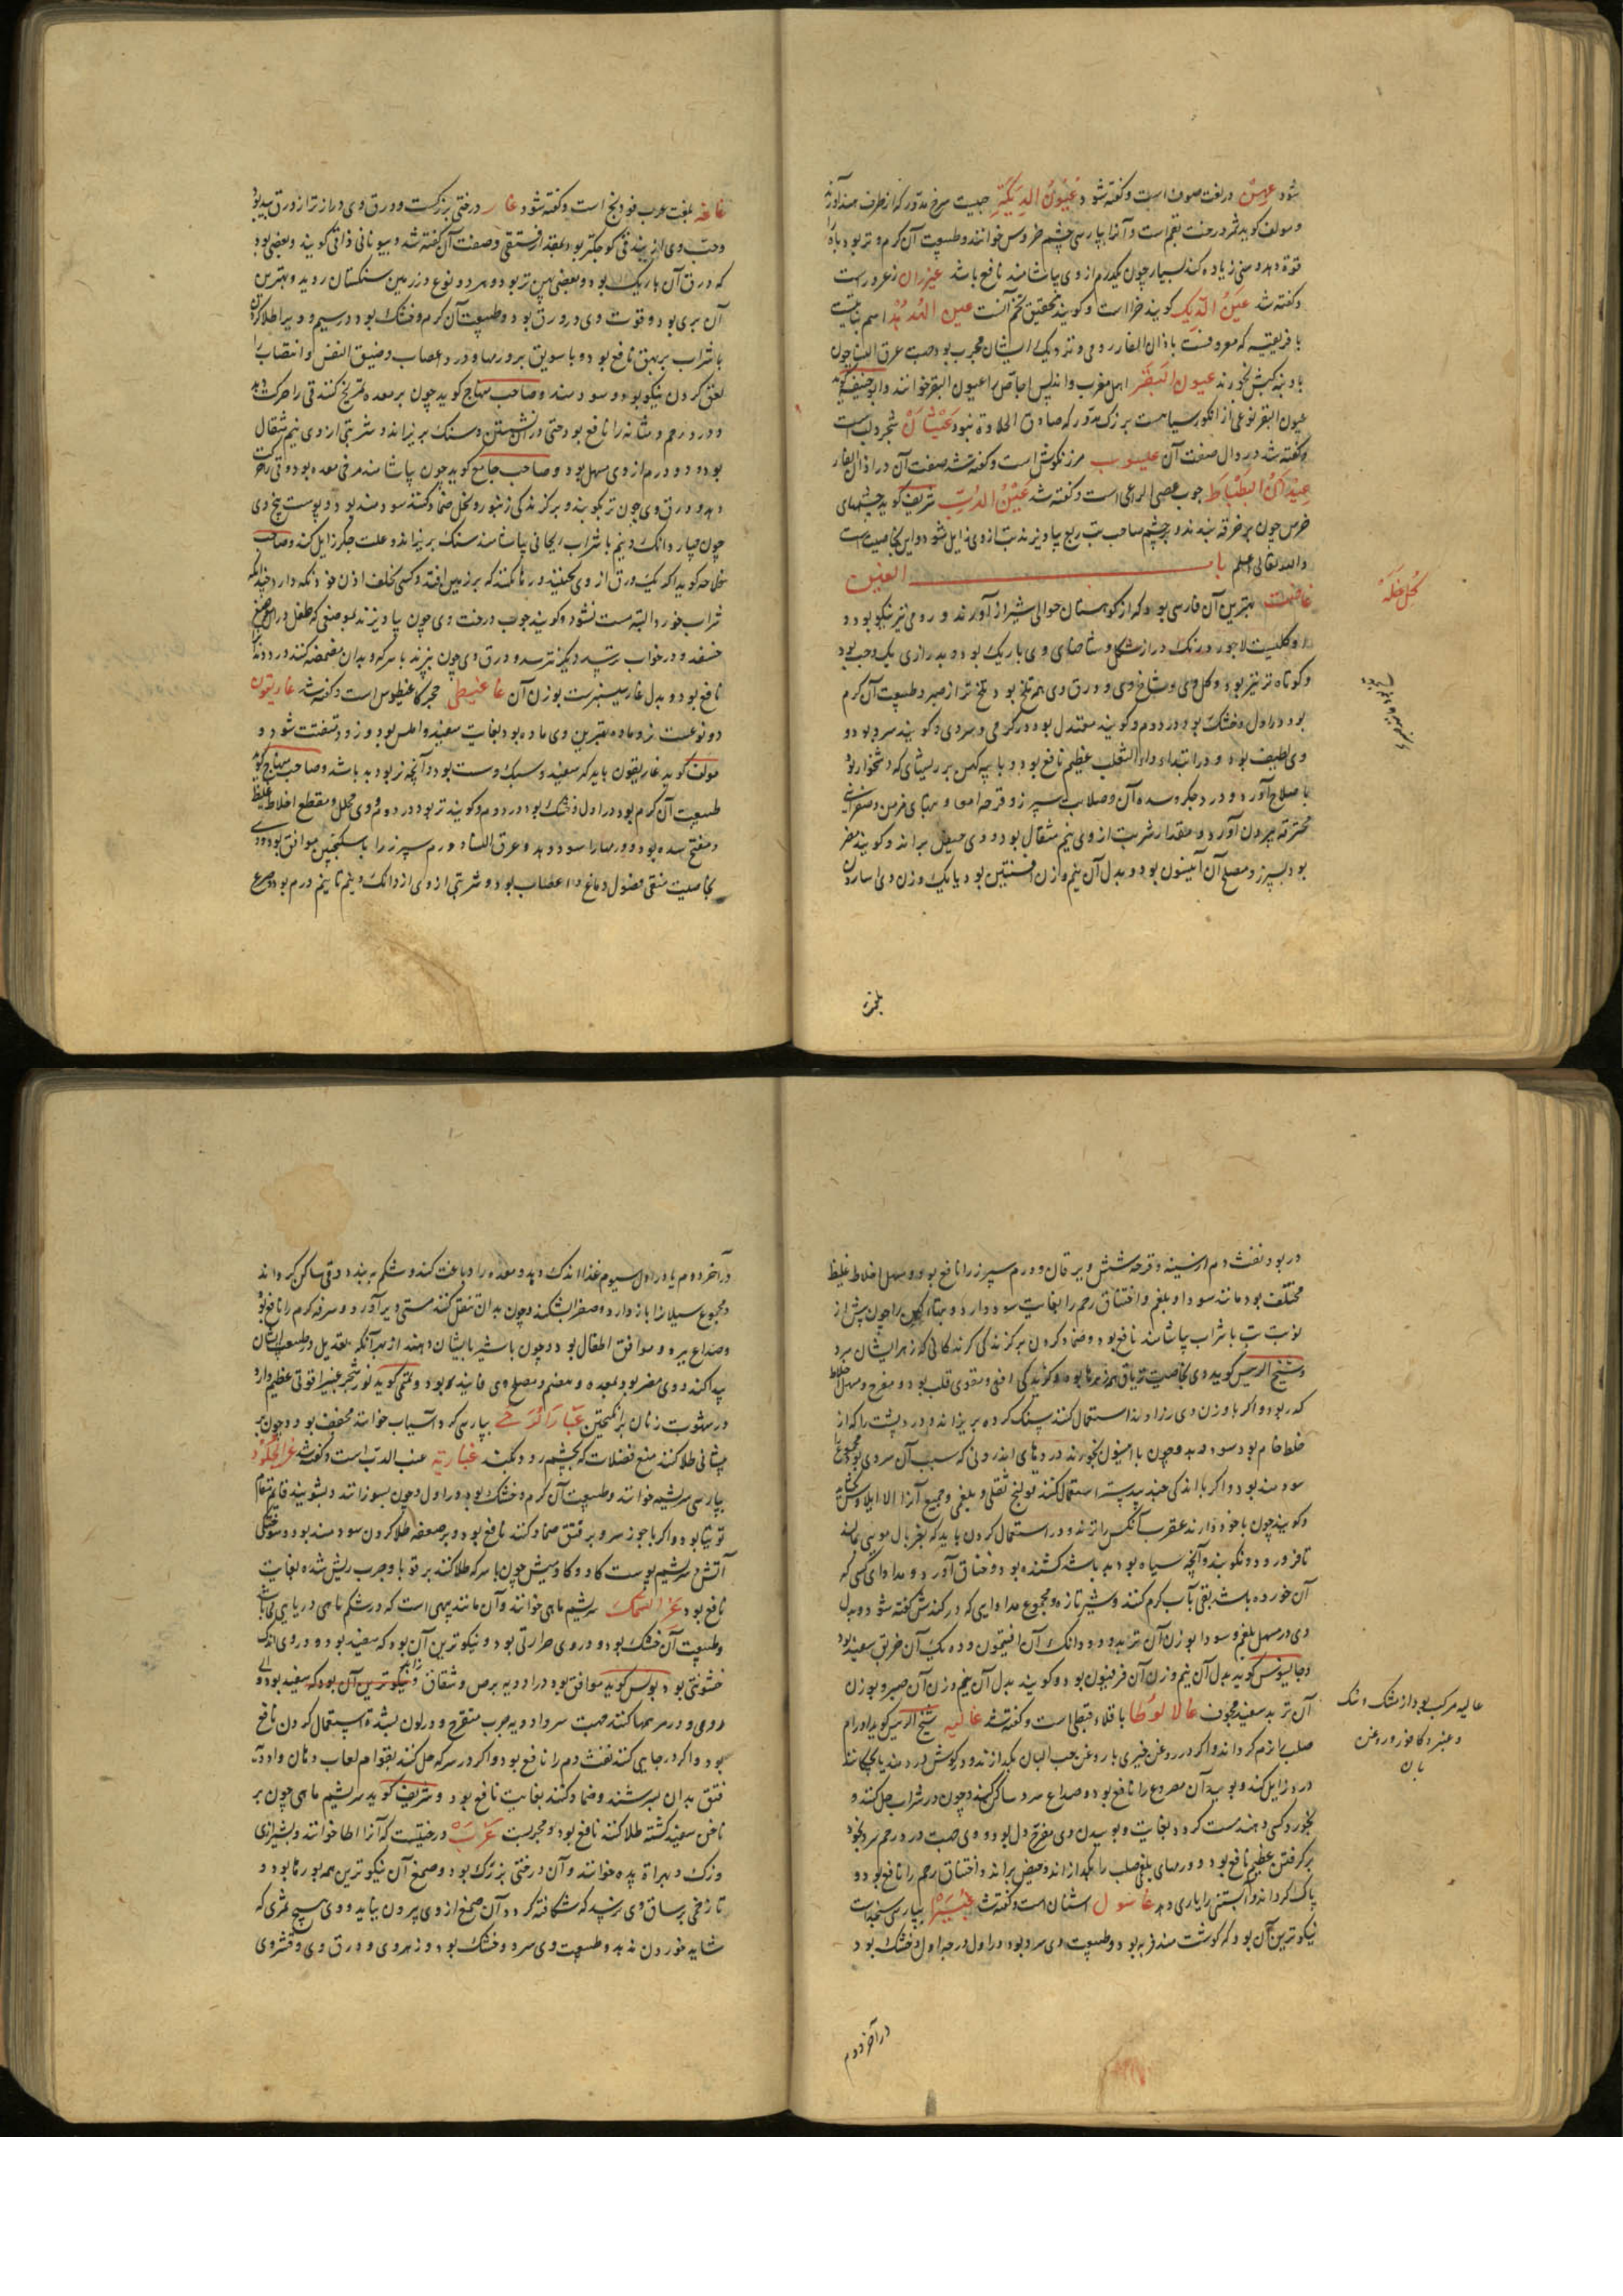 شود عهن در لغت صوف است و گفته شود عیون الدیکه حبیست سرخ مدور که از طرف هند آورند
و مولف گوید ثمر درخت بقم است و آنرا بپارسی چشم خروس خوانند و طبیعت آن گرم و تر بود باه را
قوة دهد و منی زیاده کند بسیار چون یکدرم از وی بیاشامند نافع باشد عیزران زعرور است
و گفته شد عین الدیک گویند خزا است و گویند بتحقیق تخم آنست عین الهدهد اسم نباتیست
بافریقیه که معروفست باذان الفار رومی و نزدیک ایشان مجرب بود جهت عرق النسا چون
با دنبه کبش بخورند عیون البقر اهل مغرب و اندلس اجاص را عیون البقر خوانند و ابوحنیفه گوید
عیون البقر نوعی از انگور سیاهست بزرگ مدور که صادق الحلاوة نبود عیشان شجر دلب است
و گفته شد در دال صفت آن عیسوب مرزنگوش است و گفته شد صفت آن در اذان الفار
عیدان البطباط چوب عصی الراعی است و گفته شد عین الدب شریف گوید چشمهای
خرس چون در خرقه بندند و بر چشم صاحب تب ربع بیاویزند تب از وی زایل شود و این بخاصیت است
والله تعالی اعلم باب الغین
غافت بهترین آن فارسی بود که از کوهستان حوالی شیراز آورند و رومی نیز نیکو بود و
و گلیست لاجورد رنگ دراز شکل و شاخهای وی باریک بود و بدرازی یک وجب بود
و کوتاه تر نیز بود و گل وی و شاخ وی و ورق وی هم تلخ بود تلخ تر از صبر و طبیعت آن گرم
بود در اول و خشک بود در دوم و گویند معتدل بود در گرمی و سردی و گویند سرد بود و
وی لطیف بود و در ابتداء داء الثعلب عظیم نافع بود و با پیه کهن بر ریشهای که دشخوار بود
باصلاح آورد و درد جگر و سده آن و صلابت سپرز و قرحه امعا و تبهای مزمن و صفرای
محترقه بیرون آورد و مقدار شربت از وی نیم مثقال بود و وی حیض براند و گویند مضر
بود بسپرز و مصلح آن انیسون بود و بدل آن نیم وزن افسنتین بود و یا یک وزن وی اسارون
گل خله
بلغت
غاغه بلغت عرب فودنج است و گفته شود غار درختی بزرگست و ورق وی درازتر از ورق بید بود
و حب وی از بندقی کوچکتر بود بمقدار فستقی و صفت آن گفته شد و بیونانی ذافنی گویند و بعضی بود
که ورق آن باریک بود و بعضی پهن تر بود و هر دو نوع در زمین سنگستان روید و بهترین
آن بری بود و قوت وی در ورق بود و طبیعت آن گرم و خشک بود در سیم و دیر اطلا کردن
با شراب بر بهق نافع بود و با سویق بر ورمها و درد اعصاب و ضیق النفس و انتصاب را
لعق کردن نیکو بود و سودمند و صاحب منهاج گوید چون بر معده تمریخ کنند قی را حرکت دهد
و درد رحم و مثانه را نافع بود حتی در آن نشستن و سنگ بریزاند و شربتی از وی نیم مثقال
بود و دو درم از وی مسهل بود و صاحب جامع گوید چون بیاشامند مرخی معده بود و قی را حرکت
دهد و ورق وی چون تر بکوبند و بر گزندگی زنبور و نحل ضماد کنند سودمند بود و پوست بیخ وی
چون چهار دانگ و نیم با شراب ریحانی بیاشامند سنگ بریزاند و علت جگر زایل کند و صاحب
خلاصه گوید اگر یک ورق از وی بچینند و رها نکنند که بر زمین افتد و کسی خلف اذن خود نگه دارد چندانکه
شراب خورد البته مست نشود و گویند چوب درخت وی چون بیاویزند بموضعی که طفل در آن موضع
خسفد و در خواب ترسد دیگر نترسد و ورق وی چون بپزند با سرکه و بدان مضمضه کنند درد دندانرا
نافع بود و بدل غار سیسنبرست بوزن آن غاغیطی حجر کاغنیطوس است و گفته شد غاریقون
دو نوعست نر و ماده بهترین وی ماده بود بغایت سفید و املس بود و زود متفتت شود و
مولف گوید غاریقون باید که سفید و سبک و سست بود و آنچه نر بود بد باشد و صاحب منهاج گوید
طبیعت آن گرم بود در اول و خشک بود در دوم و گویند تر بود در دوم و وی محلل و مقطع اخلاط غلیظ
و مفتح سده بود و ورمها را سود دهد و عرق النسا و ورم سپرز را با سکنجبین موافق بود و وی
بخاصیت منقی فضول دماغ و اعصاب بود و شربتی از وی از دانگ و نیم تا نیم درم بود و صرع
در بود نفث دم از سینه و قرحه شش و یرقان و ورم سپرز را نافع بود و مسهل اخلاط غلیظ
مختلف بود مانند سودا و بلغم و اختناق رحم را بغایت سود دارد و تبهاء کهن را چون پیش از
نوبت تب با شراب بیاشامند نافع بود و ضماد کردن بر گزندگی گزندگانی که زهر ایشان سرد
و شیخ الرییس گوید وی بخاصیت تریاق همه زهرها بود و گزیدگی افعی و مقوی قلب بود و مفرح و مسهل اخلاط
کدر بود و اگر با وزن وی رزاوند استعمال کنند سنگ گرده بریزاند و درد پشت را که از
خلط خام بود سود دهد و چون با انیسون بخورند دردهای اندرونی که سبب آن سردی بود مجموع را
سودمند بود و اگر با اندکی جندبیدستر استعمال کنند قولنج ثفلی و بلغمی و جمیع آنرا الا ایلاوس بگشاید
و گویند چون با خود دارند عقرب آنکس را نزند و در استعمال کردن باید که بغربال مویی بمالند
تا فرو رود و نکوبند و آنچه سیاه بود بد باشد کشنده بود و خناق آورد و مداوای کسی که
آن خورده باشد بقی بآب گرم کنند و شیر تازه و مجموع مداوایی که در کندش گفته شود و بدل
وی در مسهل بلغم و سودا بوزن آن تربد و دو دانگ آن افتیمون و ده یک آن خربق سفید بود
و جالینوس گوید بدل آن نیم وزن آن فرفیون بود و گویند بدل آن نیم وزن آن صبر و بوزن
آن تربد سفید مجوف غالالوطا باقلاء قبطی است و گفته شد غالیه شیخ الرییس گوید اورام
صلب را نرم گرداند و اگر در روغن خیری یا روغن حب البان بگدازند و در گوش دردمند بچکانند
درد زایل کند و بوییدن آن مصروع را نافع بود و صداع سرد ساکن کند و چون در شراب حل کنند و
بخورد کسی دهند مست گردد بغایت و بوییدن وی مفرح دل بود و وی جهت درد رحم سرد بخود
برگرفتن عظیم نافع بود و ورمهای بلغمی صلب را بگدازاند و حیض براند و اختناق رحم را نافع بود و
پاک گرداند و آبستنی را یاری دهد غاسول اشنان است و گفته شد غبیرا بپارسی سنجداست
نیکوترین آن بود که گوشت مند فربه بود و طبیعت وی سرد بود در اول درجه اول و خشک بود
غالیه مرکب بود از مشک و سک
و عنبر و کافور و روغن
بان
در آخر دوم
در آخر دوم یا در اول سیوم غذا اندک دهد و معده را دباغت کند و شکم ببندد و قی ساکن گرداند
و مجموع سیلانرا باز دارد و صفرا بشکند و چون بدان تنقل کنند مستی دیر آورد و سرفه گرم را نافع بود
و صداع ببرد و موافق اطفال بود و چون با شیر بایشان دهند از بهر آنکه تعدیل در طبیعت ایشان
پیدا کند و وی مضر بود بمعده و بهضم و مصلح وی فانید بود و تمیمی گوید نور شجر غبیرا قوتی عظیم دارد
در شهوت زنان برانگیختن غبار الرحی بپارسی گرد آسیاب خوانند مجفف بود و چون بر
پیشانی طلا کنند منع فضلات که بچشم رود بکند غباریه عنب الدب است و گفته شد غرا الجلود
بپارسی سریشم خوانند و طبیعت آن گرم و خشک بود در اول و چون بسوزانند و بشویند قایم مقام
توتیا بود و اگر با جوز سرو بر فتق ضماد کنند نافع بود و بر سعفه طلا کردن سودمند بود و سوختگی
آتش و سریشم پوست گاو و گاومیش چون با سرکه طلا کنند بر قوبا و جرب ریش شده بغایت
نافع بود غرا السمک سریشم ماهی خوانند و آن مانند پیهی است که در شکم ماهی دریایی می باشد
و طبیعت آن خشک بود و در وی حرارتی بود و نیکوترین آن بود که سفید بود و در وی اندک
خشونتی بود و بولس گوید موافق بود در ادویه برص و شقاق و نیکوترین آن بود که سفید بود و
رومی و در مرهمها کنند جهت سر و ادویه جرب متقرح و در لون بشره استعمال کردن نافع
بود و اگر در جایی کنند نفث دم را نافع بود و اگر در سرکه حل کنند بقوام لعاب دهان و ادویه
فتق بدان بسرشند و ضماد کنند بغایت نافع بود و شریف گوید سریشم ماهی چون بر
ناخن سفید گشته طلا کنند نافع بود و مجربست غرب درختیست که آنرا اطا خوانند و بشیرازی
وزک و بهراة پده خوانند و آن درختی بزرگ بود و صمغ آن نیکوترین همه بورها بود و
تا زخمی بر ساق وی نرسد که شکافته گردد آن صمغ از وی بیرون نیاید و وی هیچ ثمری که
شاید خوردن ندهد و طبیعت وی سرد و خشک بود و زهر وی و ورق وی و قشر وی